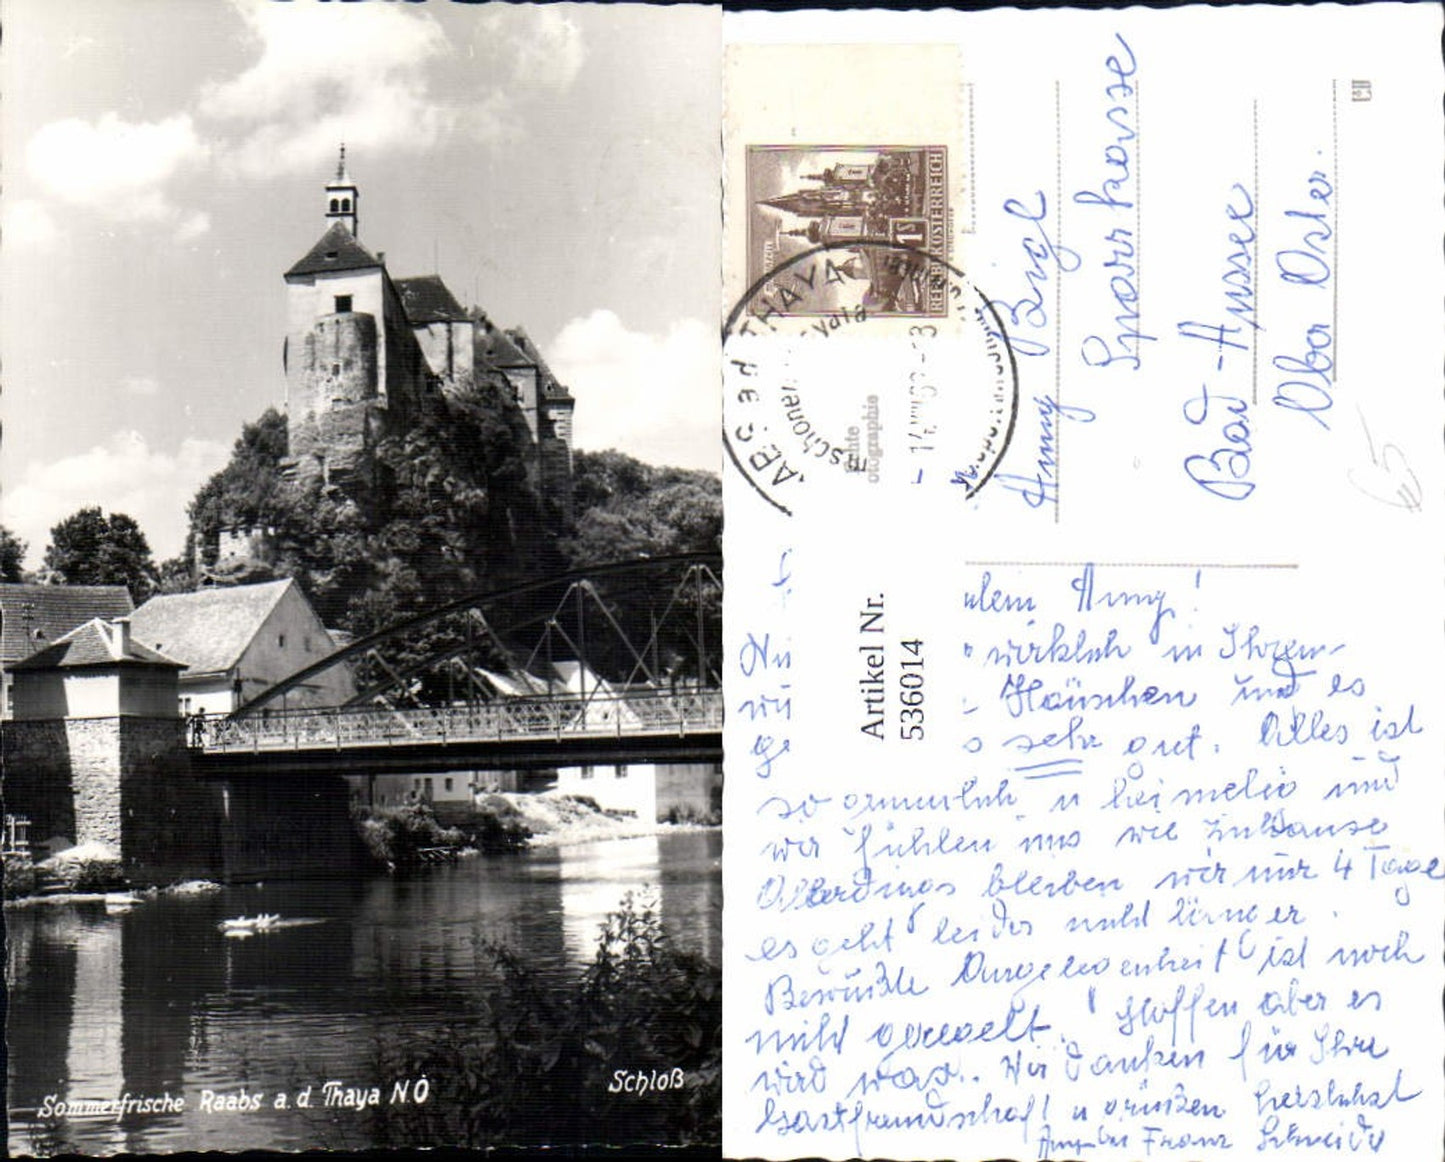 Sommerfrische Raabs a. d. Thaya N.Ö
Schloß
REPUBLIK ÖSTERREICH
1S
RAABS a d THAYA
im schönen
Echte
otographie
Artikel Nr.
536014
Anny Bigl
Sparkasse
Bad-Aussee
Ober Öster.
€5
Anny!
wirklich in Ihrem
Häuschen und es
sehr gut. Alles ist
so gemütlich u heimelig und
wir fühlen uns wie zuhause
Allerdings bleiben wir nur 4 Tage
es geht leider nicht länger.
Bewußte Angelegenheit ist noch
nicht geregelt. Hoffen aber es
wird was. Wir danken für Ihre
Gastfreundschaft u grüßen herzlichst
Franz Schneider